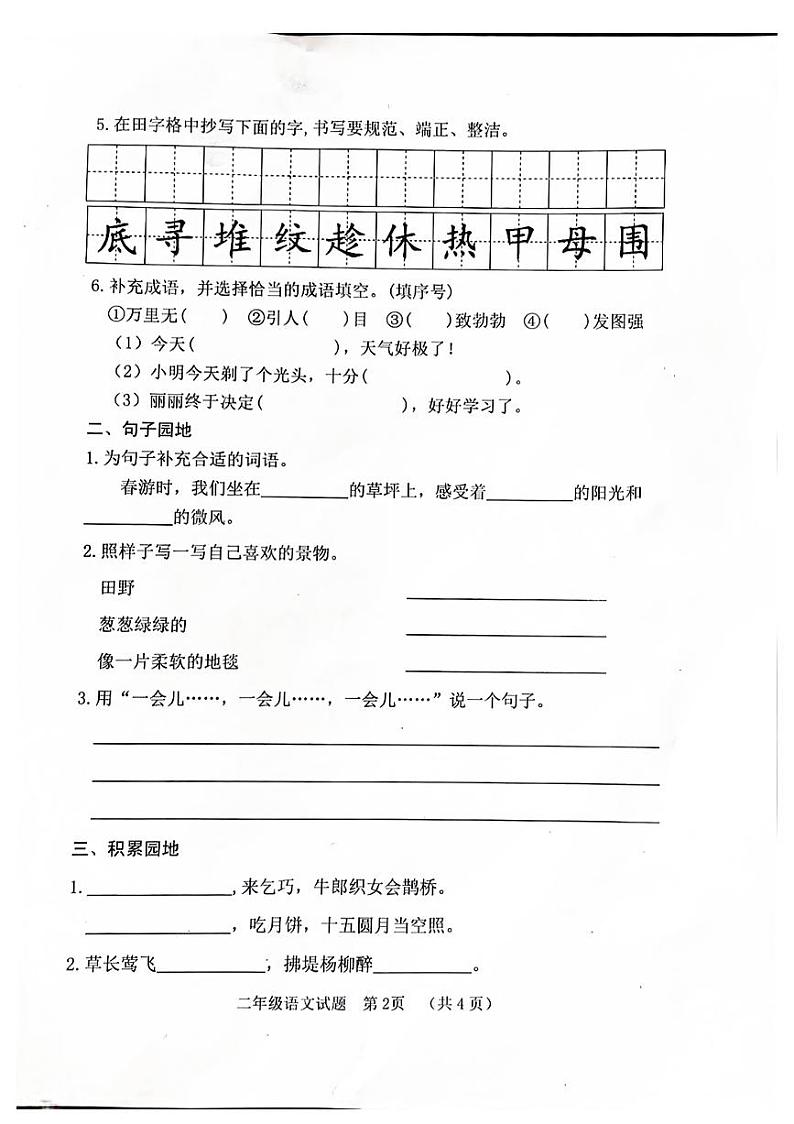 5.在田字格中抄写下面的字,书写要规范、端正、整洁。
底寻堆纹趁休热甲母围
6.补充成语，并选择恰当的成语填空。(填序号)
①万里无(    ) ②引人(    )目 ③(    )致勃勃 ④(    )发图强
(1)今天(              )，天气好极了!
(2)小明今天剃了个光头，十分(              )。
(3)丽丽终于决定(              )，好好学习了。
二、句子园地
1.为句子补充合适的词语。
春游时，我们坐在__________的草坪上，感受着__________的阳光和
__________的微风。
2.照样子写一写自己喜欢的景物。
田野 ____________________
葱葱绿绿的 ____________________
像一片柔软的地毯 ____________________
3.用“一会儿……，一会儿……，一会儿……”说一个句子。
三、积累园地
1.________________,来乞巧，牛郎织女会鹊桥。
________________，吃月饼，十五圆月当空照。
2.草长莺飞____________，拂堤杨柳醉___________。
二年级语文试题 第2页 （共4页）